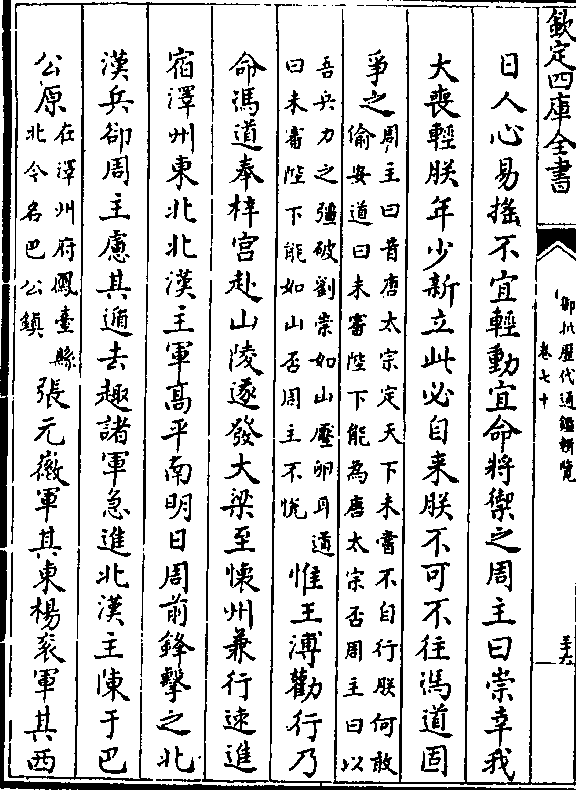 欽定四庫全書
御批歷代通鑑輯覽
卷七十
日人心易搖不宜輕動宜命將禦之周主曰崇幸我
大喪輕朕年少新立此必自來朕不可不往馮道固
爭之周主曰昔唐太宗定天下未嘗不自行朕何敢
偷安道曰未審陛下能為唐太宗否周主曰以
吾兵力之彊破劉崇如山壓卵耳道
曰未審陛下能如山否周主不悅惟王溥勸行乃
命馮道奉梓宮赴山陵遂發大梁至懷州兼行速進
宿澤州東北北漢主軍高平南明日周前鋒擊之北
漢兵卻周主慮其遁去趣諸軍急進北漢主陳于巴
公原在澤州府鳳臺縣
北今名巴公鎮張元徽軍其東楊衮軍其西